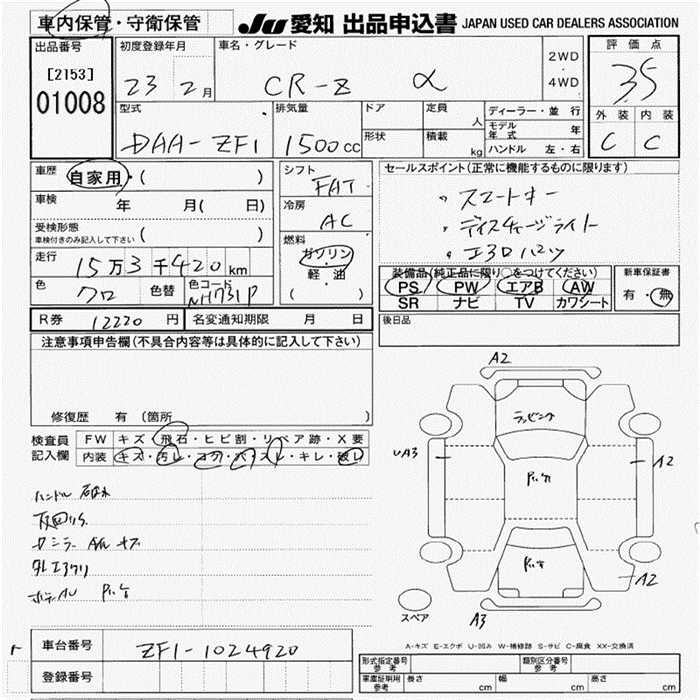 車内保管・守衛保管
JU 愛知 出品申込書 JAPAN USED CAR DEALERS ASSOCIATION
出品番号 [2153] 01008
初度登録年月 23 2月
車名・グレード CR-Z α
2WD・4WD
評価点 3.5
外装 C 内装 C
型式 DAA-ZF1
排気量 1500cc
ドア 形状
定員 人
積載 kg
ディーラー・並行
モデル年式 年
ハンドル 左・右
車歴 自家用・( )
車検 年 月( 日)
受検形態 車検付きのみ記入して下さい ( )
走行 15万3千420km
色 クロ 色替 色コード NH731P
シフト FAT
冷房 AC
燃料 ガソリン・軽油 ( )
セールスポイント(正常に機能するものに限ります)
・スマートキー
・ディスチャージライト
・エアロパーツ
装備品(純正品に限り○をつけてください)
PS PW エアB AW
SR ナビ TV カワシート
新車保証書 有・無
R券 12220円 名変通知期限 月 日
後日品
注意事項申告欄(不具合内容等は具体的に記入して下さい)
修復歴 有 (箇所 )
検査員記入欄
FW キズ・飛石・ヒビ割・リペア跡・X要
内装 キズ・汚レ・コゲ・穴・スレ・キレ・破レ
A2
ラッピング
UA3
A2
A2
A3
スペア
A-キズ E-エクボ U-凹み W-補修跡 S-サビ C-腐食 XX-交換済
車台番号 ZF1-1024920
登録番号
形式指定番号 参考 類別区分番号 参考
車庫証明用 参考 長さ cm 幅 cm 高さ cm